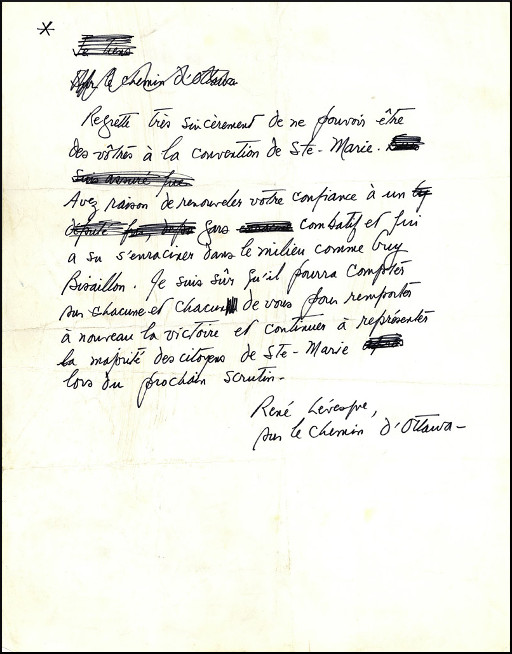 *
Je tiens
Sur le chemin d'Ottawa
Regrette très sincèrement de ne pouvoir être
des vôtres à la convention de Ste-Marie.
Suis assuré que
Avez raison de renouveler votre confiance à un
député gars combatif et qui
a su s'enraciner dans le milieu comme Guy
Bisaillon. Je suis sûr qu'il pourra compter
sur chacune et chacun de vous pour remporter
à nouveau la victoire et continuer à représenter
la majorité des citoyens de Ste-Marie
lors du prochain scrutin.
René Lévesque,
sur le chemin d'Ottawa-